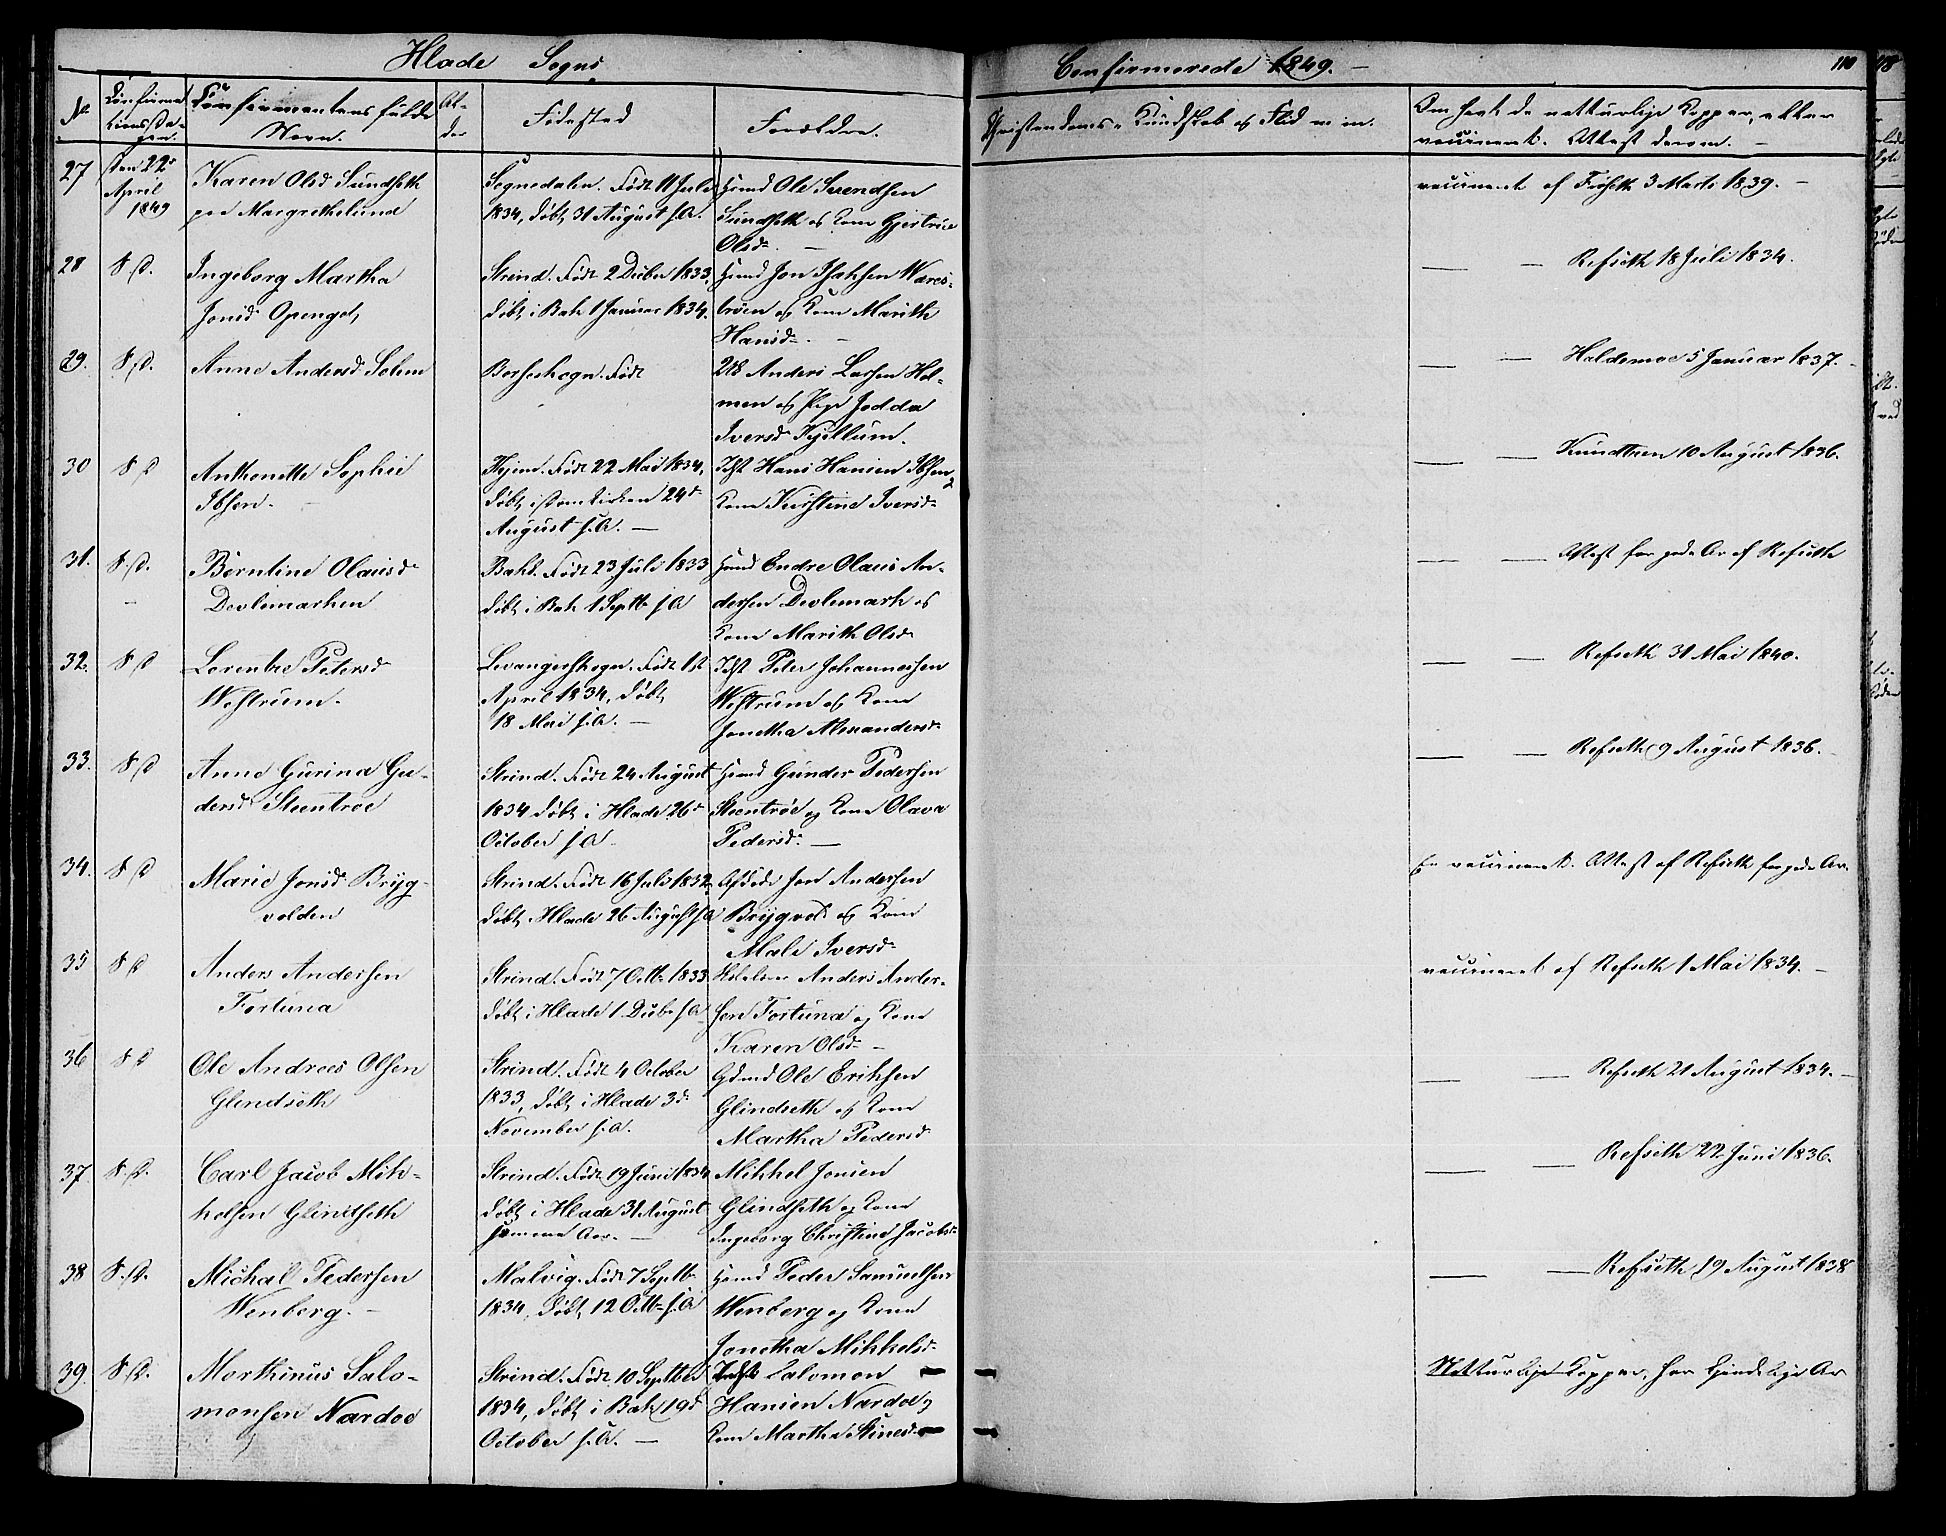 Hlade Sogns
Confirmerede 1849. —
110
No
Confirma-
tionsda-
gen.
Confirmantens fulde
Navn.
Al-
der
Fødested
Forældre.
Christendoms-Kundskab og Flid m. m.
Om havt de naturlige Kopper, eller
vaccineret. Attest derom. —
27
den 22de
April
1849
Karen Olsd Sundseth
paa Margrethelund
Sognedalen. Født 11 Juli
1834, døbt 31 August s. A.
Huusmd Ole Svendsen
Sundseth og Kone Gjertrue
Olsd. —
vaccineret af Forseth 3 Marts 1839. —
28
S. D.
Ingeborg Martha
Jonsd Openget,
Strind. Født 2 Decber 1833,
døbt i Bak 1 Januar 1834.
Huusmd Jon Isaksen Wares-
trøen og Kone Marith
Hansd. —
— — Refseth 18 Juli 1834.
29.
S. D.
Anne Andersd Solem
Børseskogn. Født
Anders Larsen Hol-
men og Pige Jodda
Iversd Kjellum.
— — Haldemoe 5 Januar 1837. —
30
S. D
Anthonette Sophie
Ibsen. —
Født 22 Mai 1834,
døbt i Domkirken 24de
August s. A. —
Hans Hansen Ibsen
Kone Kirstine Iversd.
— — Knudtzen 10 August 1836.
31.
S. D.
Berntine Olausd
Devlemarken
Bakl. Født 23 Juli 1833
døbt i Bak 1 Septb. s. A
Huusmd Endre Olaus An-
dersen Devlemark og
Kone Marith Olsd
— — Attest for gode Ar af Refseth
32.
S. D
Lorentze Petersd
Westrum.
Levangerskogn. Født 1st
April 1834, døbt
18 Mai s. A. —
Peter Johannesen
Westrum og Kone
Jonetha Alexandersd.
— — Refseth 31 Mai 1840.
33.
S. D
Anne Gurina Gu-
dersd Steentrøe
Strind. Født 24 August
1834 døbt i Hlade 26de
October s. A.
Huusmd Gunder Pedersen
Steentrøe og Kone Olava
Pedersd. —
— — Refseth 9 August 1836. —
34.
S. D
Marie Jonsd Bryg-
volden
Strind. Født 16 Juli 1832,
døbt Hlade 26 August s. A
Afdøde Jon Andersen
Brygvol og Kone
Male Iversd.
Er vaccineret. Attest af Refseth for gode Ar.
35
S. D
Anders Andersen
Fortuna
Strind. Født 7 Octb. 1833.
døbt i Hlade 1. Decbr s. A
Anders Ander-
sen Fortuna og Kone
Karen Olsd. —
vaccineret af Refseth 1 Mai 1834. —
36
S. D
Ole Andreas Olsen
Glindseth
Strind. Født 4 October
1833, døbt i Hlade 3de
November s. A.
Gdmd Ole Eriksen
Glindseth og Kone
Martha Pedersd
— — Refseth 21 August 1834. —
37
S. D.
Carl Jacob Mik-
kelsen Glindseth
Strind. Født 19 Juni 1834
døbt i Hlade 31 August
samme Aar. —
Mikkel Jonsen
Glindseth og Kone
Ingeborg Christine Jacobsd.
— — Refseth 22 Juni 1836.
38
S. D.
Michal Pedersen
Wenberg. —
Malvig. Født 7 Septb.
1834, døbt 12 Octb. s. A
Huusmd Peder Samuelsen
Wenberg og Kone
Jonetha Mikkelsd.
— — Refseth 19 August 1838
39.
S. D.
Morthinus Salo-
monsen Nardoe
Strind. Født 10 Septbr
1834, døbt i Bak 19de
October s. A. —
Salomon
Hansen Nardoe
Kone Martha Stinesd.
Naturlige Kopper, har kjendelige Ar